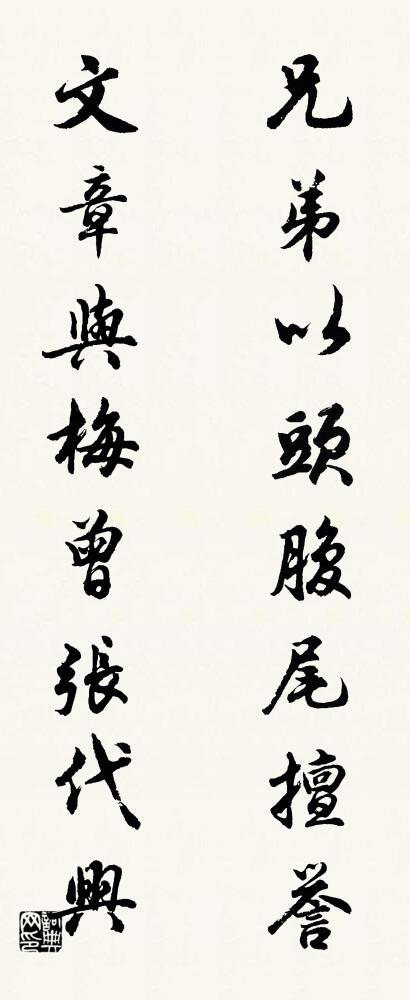 兄弟以頭腹尾擅譽
文章與梅曾張代興
詞典網印